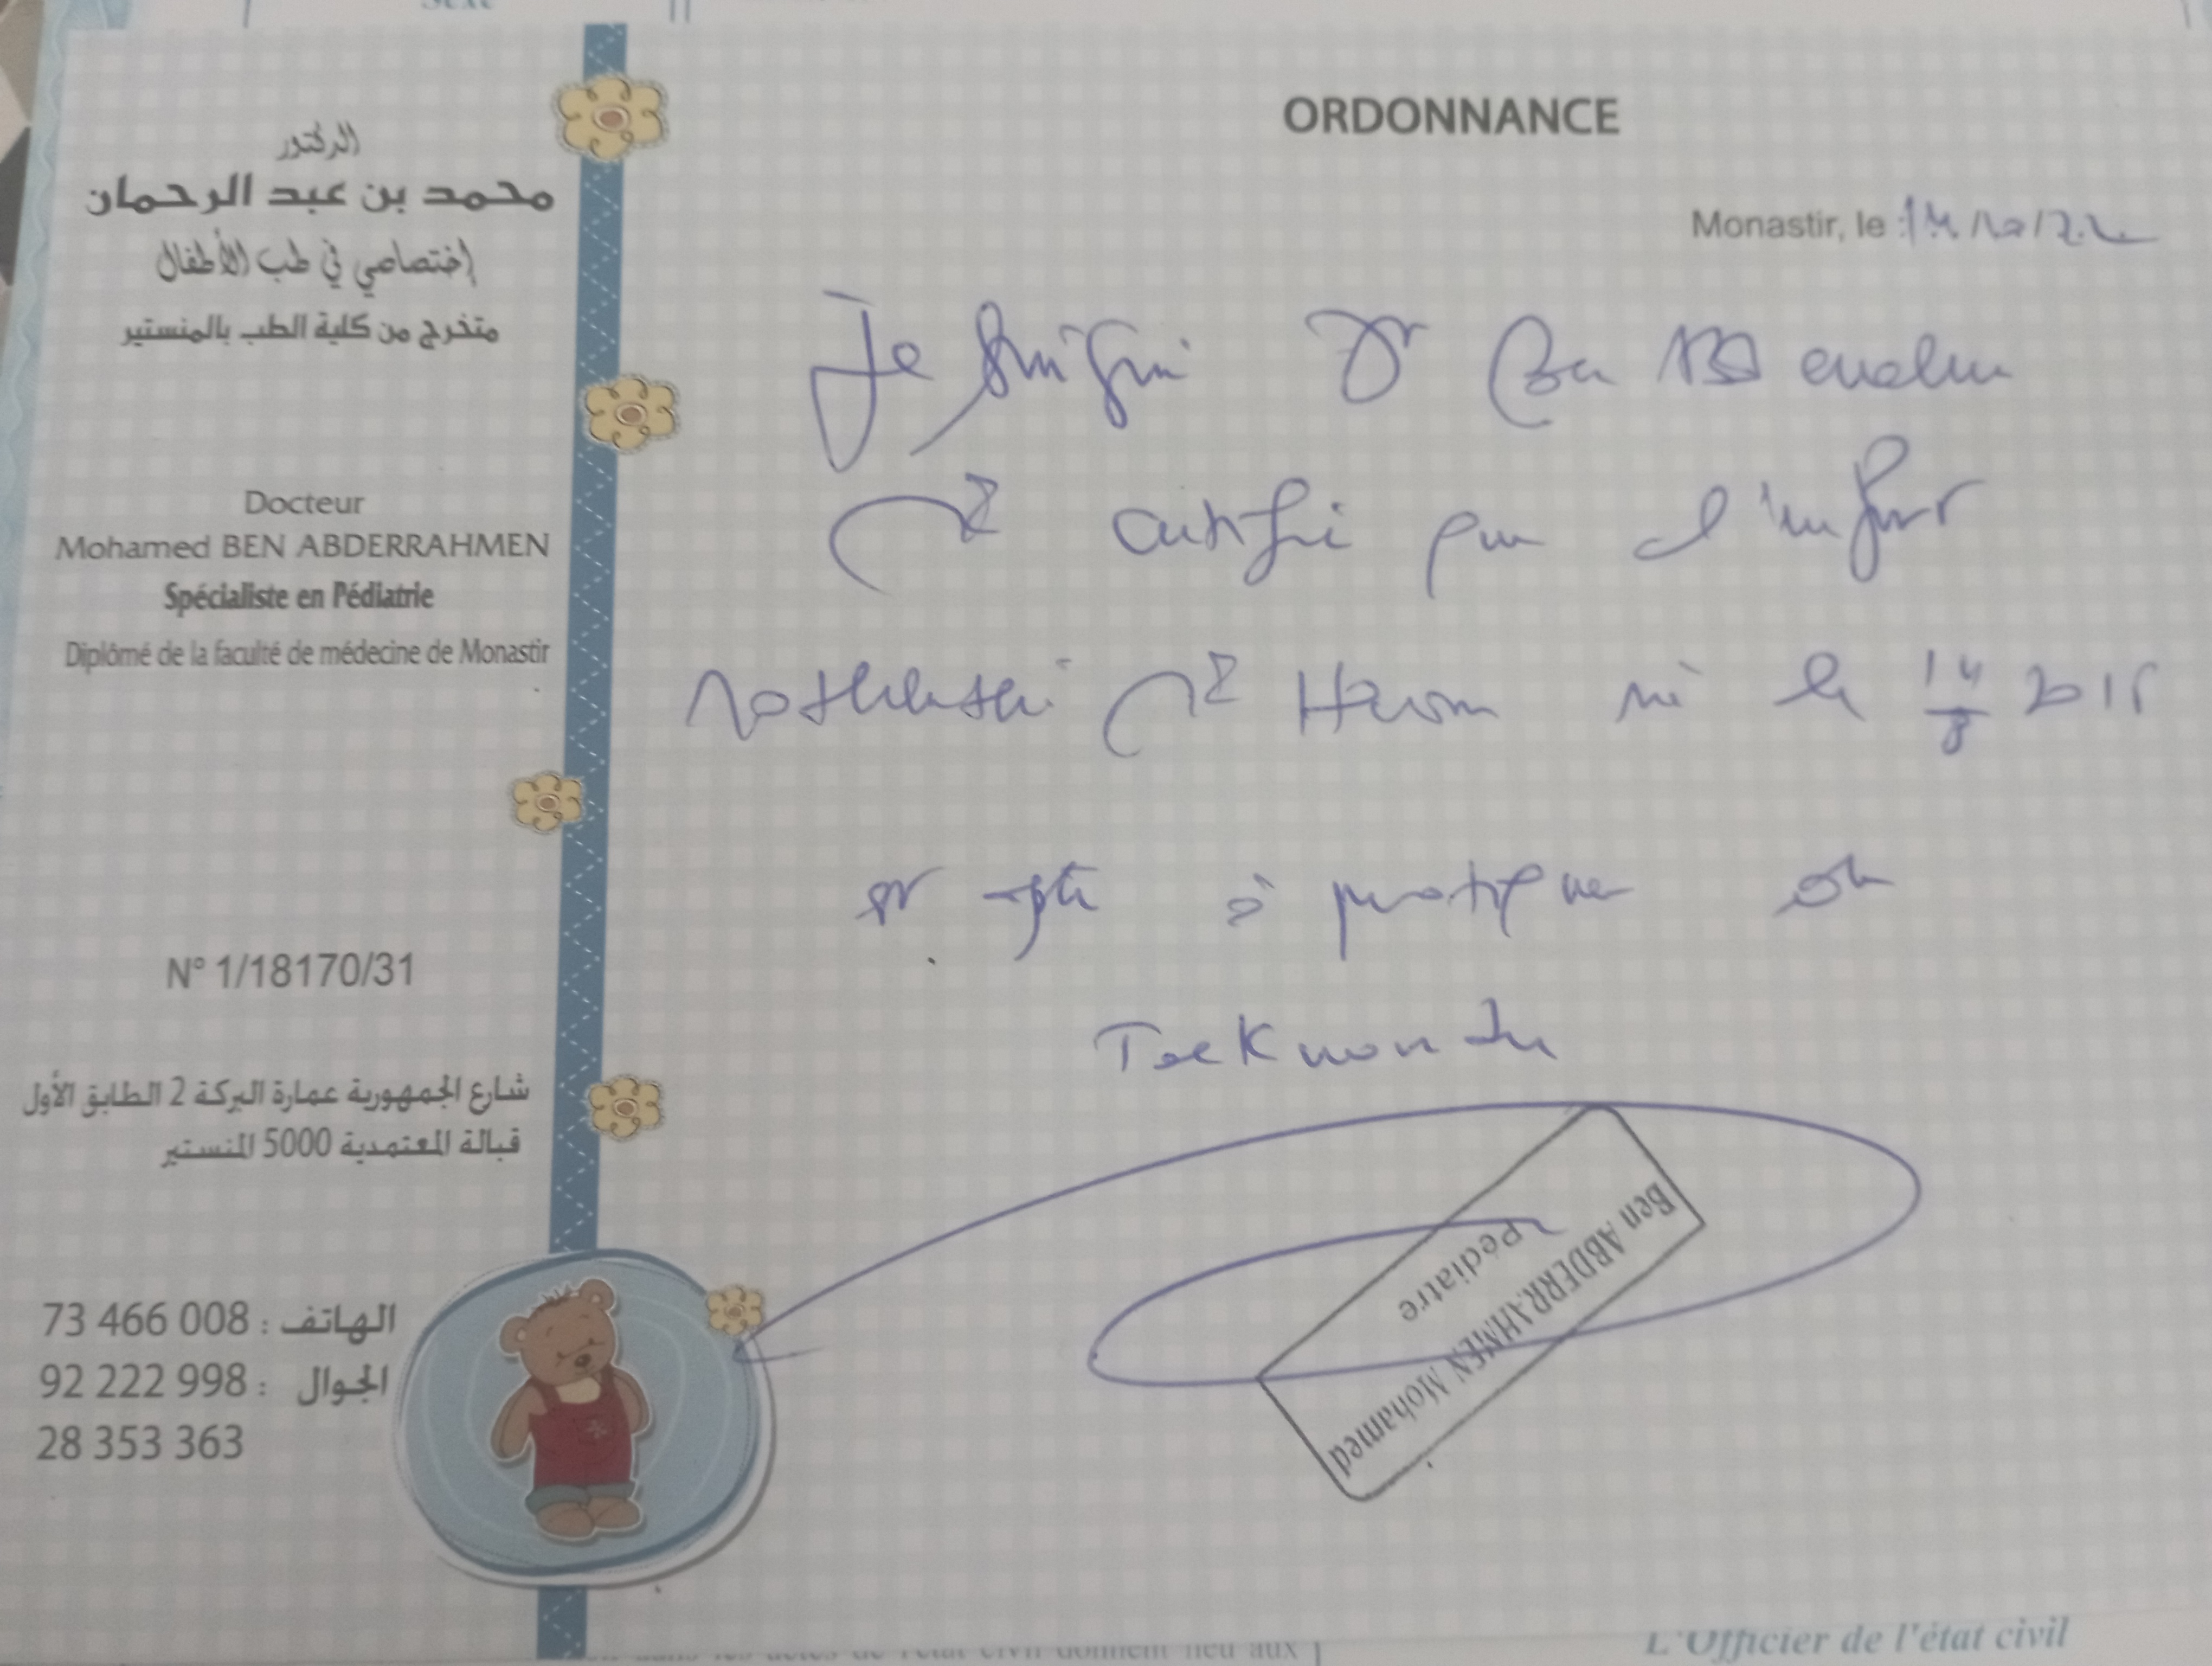 ORDONNANCE
الدكتور
محمد بن عبد الرحمان
إختصاصي في طب الأطفال
متخرج من كلية الطب بالمنستير
Docteur
Mohamed BEN ABDERRAHMEN
Spécialiste en Pédiatrie
Diplômé de la faculté de médecine de Monastir
N° 1/18170/31
شارع الجمهورية عمارة البركة 2 الطابق الأول
قبالة المعتمدية 5000 المنستير
الهاتف : 73 466 008
الجوال : 92 222 998
28 353 363
Monastir, le
Je soussigné Dr Ben
certifie que l'enfant
né le 14/8
est apte à pratiquer
Taekwondo
Ben ABDERRAHMEN Mohamed
Pédiatre
L'Officier de l'état civil